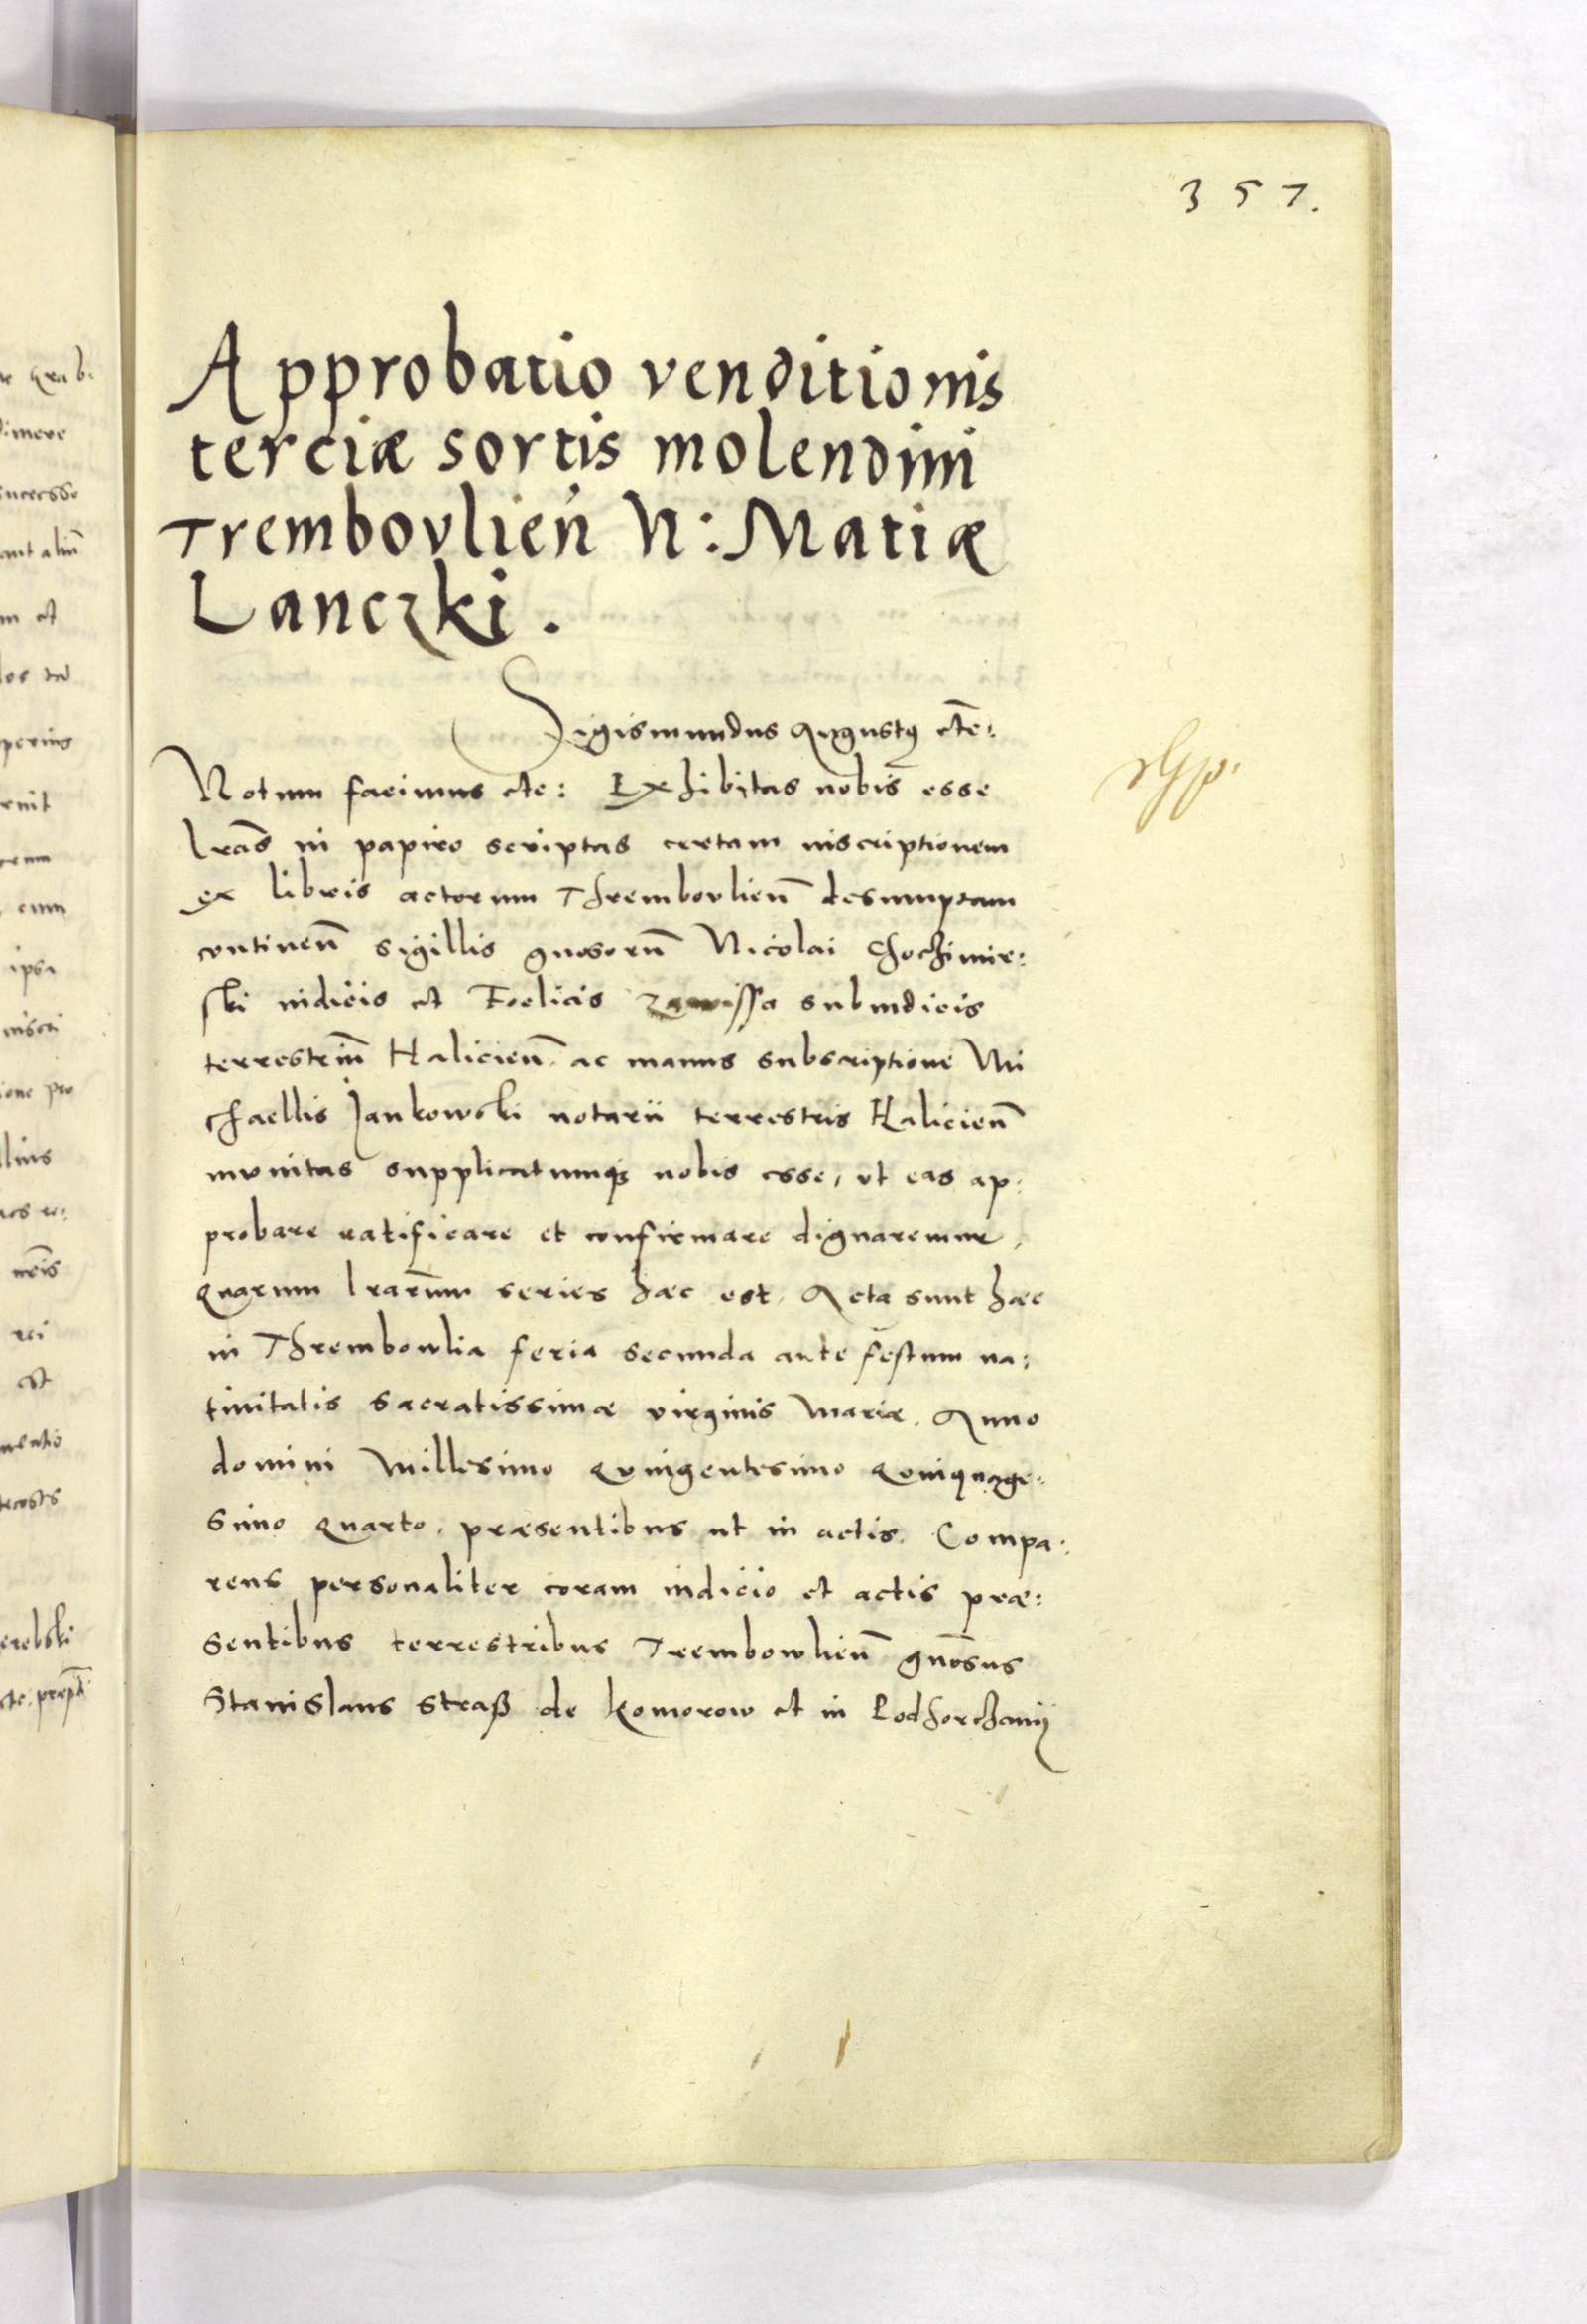 357.
Approbatio venditionis
terciæ sortis molendini
Trembovlien̄ N: Matiæ
Lanczki.
Sigismundus Augustꝰ etc̄:
Notum facimus etc: Exhibitas nobis esse
lrās in papiro scriptas certam inscriptionem
ex libris actorum Thrembovlien̄ desumptam
continen̄ sigillis gnosorum̄ Nicolai Chochimir:
ski iudicis et Foelicis Zawissa subiudicis
terrestriū Halicien̄ ac manus subscriptione Mi
chaellis Jankowski notarii terrestris Halicien̄
munitas supplicatumqꝫ nobis esse, ut eas ap:
probare ratificare et confirmare dignaremur,
Quarum lrarūm series hæc est. Acta sunt hæc
in Thrembowlia feria secunda ante festum na:
tiuitatis sacratissimæ virginis Mariæ. Anno
domini Millesimo Quingentesimo Quinquage:
simo Quarto. præsentibus ut in actis. Compa:
rens personaliter coram iudicio et actis præ:
sentibus terrestribus Trembowlien̄ gnōsus
Stanislaus Straß de Komorow et in